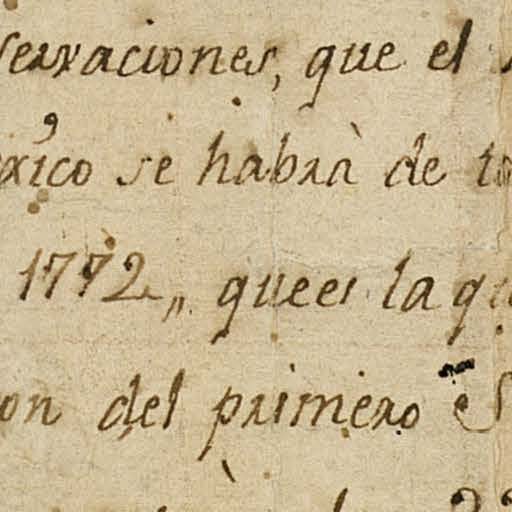 servaciones, que el
xico se habrà de
1772,, quees la qu
on del primero